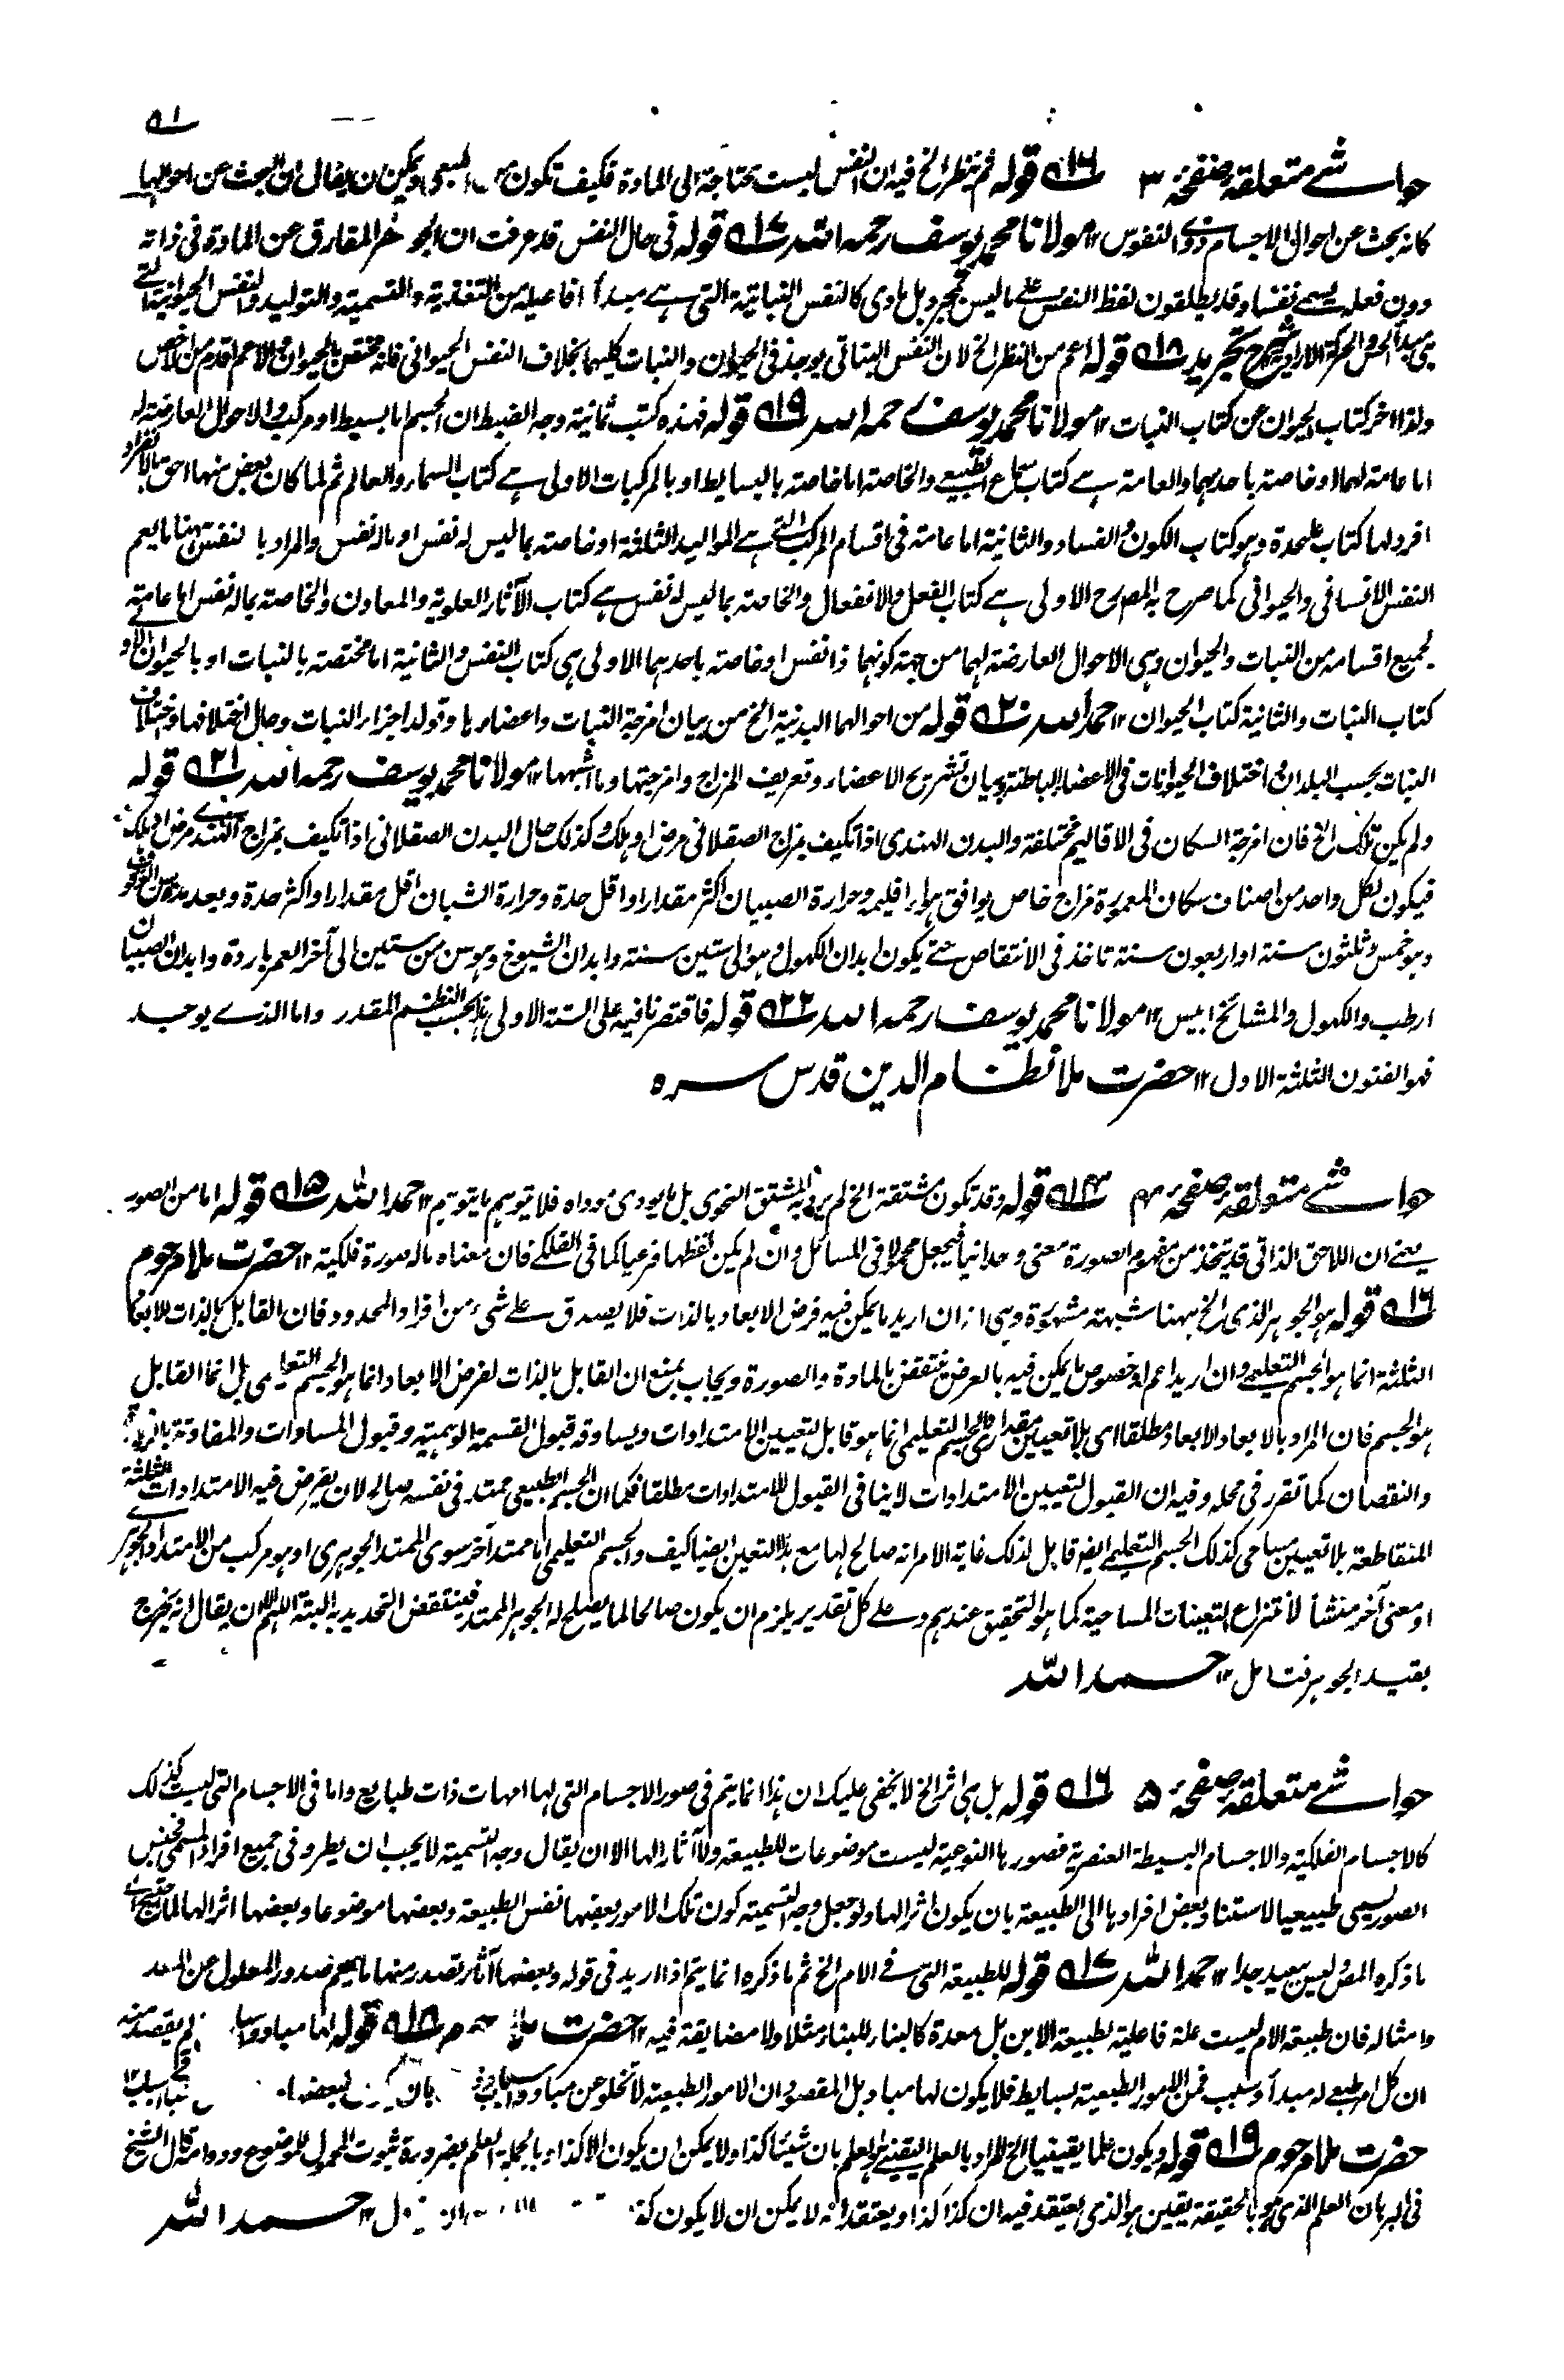 ٥١
حواشے متعلقہ صفحہ ٣ ١٦ قوله ثم ننظر الخ فيه ان النفس ليست محتاجة الى المادة فكيف تكون من الطبعى ويمكن ان يقال ان البحث عن احوالها
كانه بحث عن احوال الاجسام ذوى النفوس ١٢ مولانا محمد يوسف رحمه الله ١٧ قوله فى حال النفس قد عرفت ان الجوهر المفارق عن المادة فى ذاته
دون فعله يسمى نفسا وقد يطلقون لفظ النفس على ما ليس بمجرد بل مادى كالنفس النباتية التى هے مبدأ افاعيله من التغذية والتنمية والتوليد والنفس الحيوانية التے
هى مبدأ الحس والحركة الارادية ١٢ شرح تجريد ١٨ قوله اعم من النظر الخ لان النفس النباتى يوجد فى الحيوان والنبات كليهما بخلاف النفس الحيوانى فانه مختص بالحيوان والاعم اقدم من الاخص
ولذا اخر كتاب الحيوان عن كتاب النبات ١٢ مولانا محمد يوسف رحمه الله ١٩ قوله فهذه كتب ثمانية وجه الضبط ان الجسم اما بسيط او مركب والاحوال العارضة له
اما عامة لهما او خاصة باحدهما والعامة هے كتاب سماع الطبيعے والخاصة اما خاصة بالبسايط او بالمركبات الاولى هے كتاب السماء والعالم ثم لما كان بعض منها احق بالانفراد
افرد لها كتاب علحدة وهو كتاب الكون والفساد والثانية اما عامة فى اقسام المركب التے هے المواليد الثلثة او خاصة بما ليس له نفس او ماله نفس والمراد بالنفس ههنا ما يعم
النفس الانسانى والحيوانى كما صرح به المصرح الاولى هے كتاب الفعل والانفعال والخاصة بما ليس له نفس هے كتاب الآثار العلوية والمعادن والخاصة بماله نفس اما عامة
لجميع اقسامه من النبات والحيوان وهى الاحوال العارضة لهما من جهة كونهما ذا نفس او خاصة باحدهما الاولى هى كتاب النفس والثانية اما مختصة بالنبات او بالحيوان الاول
كتاب النبات والثانية كتاب الحيوان ١٢ حمد الله ٢٠ قوله من احوالهما البدنية الخ من بيان امزجة النبات واعضاءها وتولد اجزاء النبات وحال اختلافها واختلاف
النبات بحسب البلدان واختلاف الحيوانات فى الاعضاء الباطنة وبيان تشريح الاعضاء وتعريف المزاج وامزجتها وما اشبهها ١٢ مولانا محمد يوسف رحمه الله ٢١ قوله
ولم يكن تلك الخ فان امزجة السكان فى الاقاليم مختلفة والبدن الهندى اذا تكيف بمزاج الصقلانى مرض او هلك وكذلك حال البدن الصقلانى اذا تكيف بمزاج الهندے مرض او هلك
فيكون لكل واحد من اصناف سكان المعمورة مزاج خاص يوافق هواء اقليمه وحرارة الصبيان اكثر مقدارا واقل حدة وحرارة الشبان اقل مقدارا واكثر حدة وبعد مدة سن الوقوف
وهو خمس وثلثون سنة او اربعون سنة تاخذ فى الانتقاص حتے يكون ابدان الكهول وهو الى ستين سنة وابدان الشيوخ وهو سن من ستين الى آخر العمر باردة وابدان الصبيان
ارطب والكهول والمشائخ ايبس ١٢ مولانا محمد يوسف رحمه الله ٢٢ قوله فاقتصرنا فيه على الستة الاولى هذا بحسب النظم المقدر واما الذے يوجد
فهو الفنون الثلثة الاول ١٢ حضرت ملا نظام الدين قدس سره
حواشے متعلقہ صفحہ ٤ ١٤ قوله وقد تكون مشتقة الخ لم يرد به المشتق النحوى بل ما يودى موداه فلا يتوهم ما يتوهم ١٢ حمد الله ١٥ قوله اما من الصور
يعنے ان اللاحق الذاتى قد يتخذ من مفهوم الصورة معنى وحدانيا فيجعل محمولا فى المسائل وان لم يكن لفظها فرعيا كما فى الفلكے فان معناه ماله صورة فلكية ١٢ حضرت ملا مرحوم
١٦ قوله هو الجوهر الذى الخ ههنا شبهة مشهورة وهى انه ان اريد ما يمكن فيه فرض الابعاد بالذات فلا يصدق علے شىء من افراد المحدود فان القابل بالذات للابعاد
الثلثة انما هو الجسم التعليمے وان اريد اعم او خصوص ما يمكن فيه بالعرض ينتقض بالمادة والصورة ويجاب بمنع ان القابل بالذات لفرض الابعاد انما هو الجسم التعليمى بل انما القابل
هو الجسم فان المراد بالابعاد الابعاد مطلقا اى بلا تعيين مقدارى والجسم التعليمى انما هو قابل لتعيين الامتدادات ويساوقه قبول القسمة الوهمية وقبول المساوات والمفاوتة بالزيادة
والنقصان كما تقرر فى محله وفيه ان القبول لتعيين الامتدادات لا ينافى القبول للامتدادات مطلقا فكما ان الجسم الطبيعى ممتد فى نفسه صالح لان يفرض فيه الامتدادات الثلثة
المتقاطعة بلا تعيين مساحى كذلك الجسم التعليمے ايضا قابل لذلك غاية الامر انه صالح لها مع هذا التعين ايضا كيف والجسم التعليمى اما ممتد آخر سوى الممتد الجوهرى او هو مركب من الامتداد الجوهرے
او معنى آخر منشأ لانتزاع التعينات المساحية كما هو التحقيق عندهم وعلے كل تقدير يلزم ان يكون صالحا لما يصلح له الجوهر الممتد فينتقض التحديد به البتة اللهم الا ان يقال انه يخرج
بقيد الجوهر فتامل ١٢ حمد الله
حواشے متعلقہ صفحہ ٥ ١٦ قوله بل هى اثر الخ لا يخفى عليك ان هذا انما يتم فى صور الاجسام التى لها امهات ذات طبايع واما فى الاجسام التى ليست كذلك
كالاجسام الفلكية والاجسام البسيطة العنصرية فصورها النوعية ليست موضوعات للطبيعة ولا آثارا لها الا ان يقال وجه التسمية لا يجب ان يطرد فى جميع افراد المسمى فجنس
الصور يسمى طبيعيا لاستناد بعض افرادها الى الطبيعة بان يكون اثرا لها ولو جعل وجه التسمية كون تلك الامور بعضها نفس الطبيعة وبعضها موضوعا وبعضها اثرا لها لما احتيج الے
ما ذكره المص وليس ببعيد جدا ١٢ حمد الله ١٧ قوله للطبيعة التى فے الام الخ ثم ما ذكره انما يتم اذا اريد فى قوله وبعضها آثار تصدر منها ما يعم صدور المعلول عن المعد
وامثاله فان طبيعة الام ليست علة فاعلية لطبيعة الابن بل معدة كالبناء للبناء مثلا ولا مضايقة فيه ١٢ حضرت ملا ١٨ قوله لها مباد واسباب لم يقصد منه
ان كل امر طبعے له مبدأ وسبب فمن الامور الطبعية بسايط فلا يكون لها مباد بل المقصود ان الامور الطبعية لا تخلو عن مباد واسباب بان يكون لبعضها
حضرت ملا مرحوم ١٩ قوله ويكون علما يقينيا الخ المراد بالعلم اليقينى العلم بان شيئا كذا ولا يمكن ان يكون الا كذا وبالجملة العلم بضرورة ثبوت المحمول للموضوع ودوامه قال الشيخ
فى البرهان العلم الذى هو بالحقيقة يقين هو الذى يعتقد فيه ان كذا كذا ويعتقد انه لا يمكن ان لا يكون كذا حمد الله